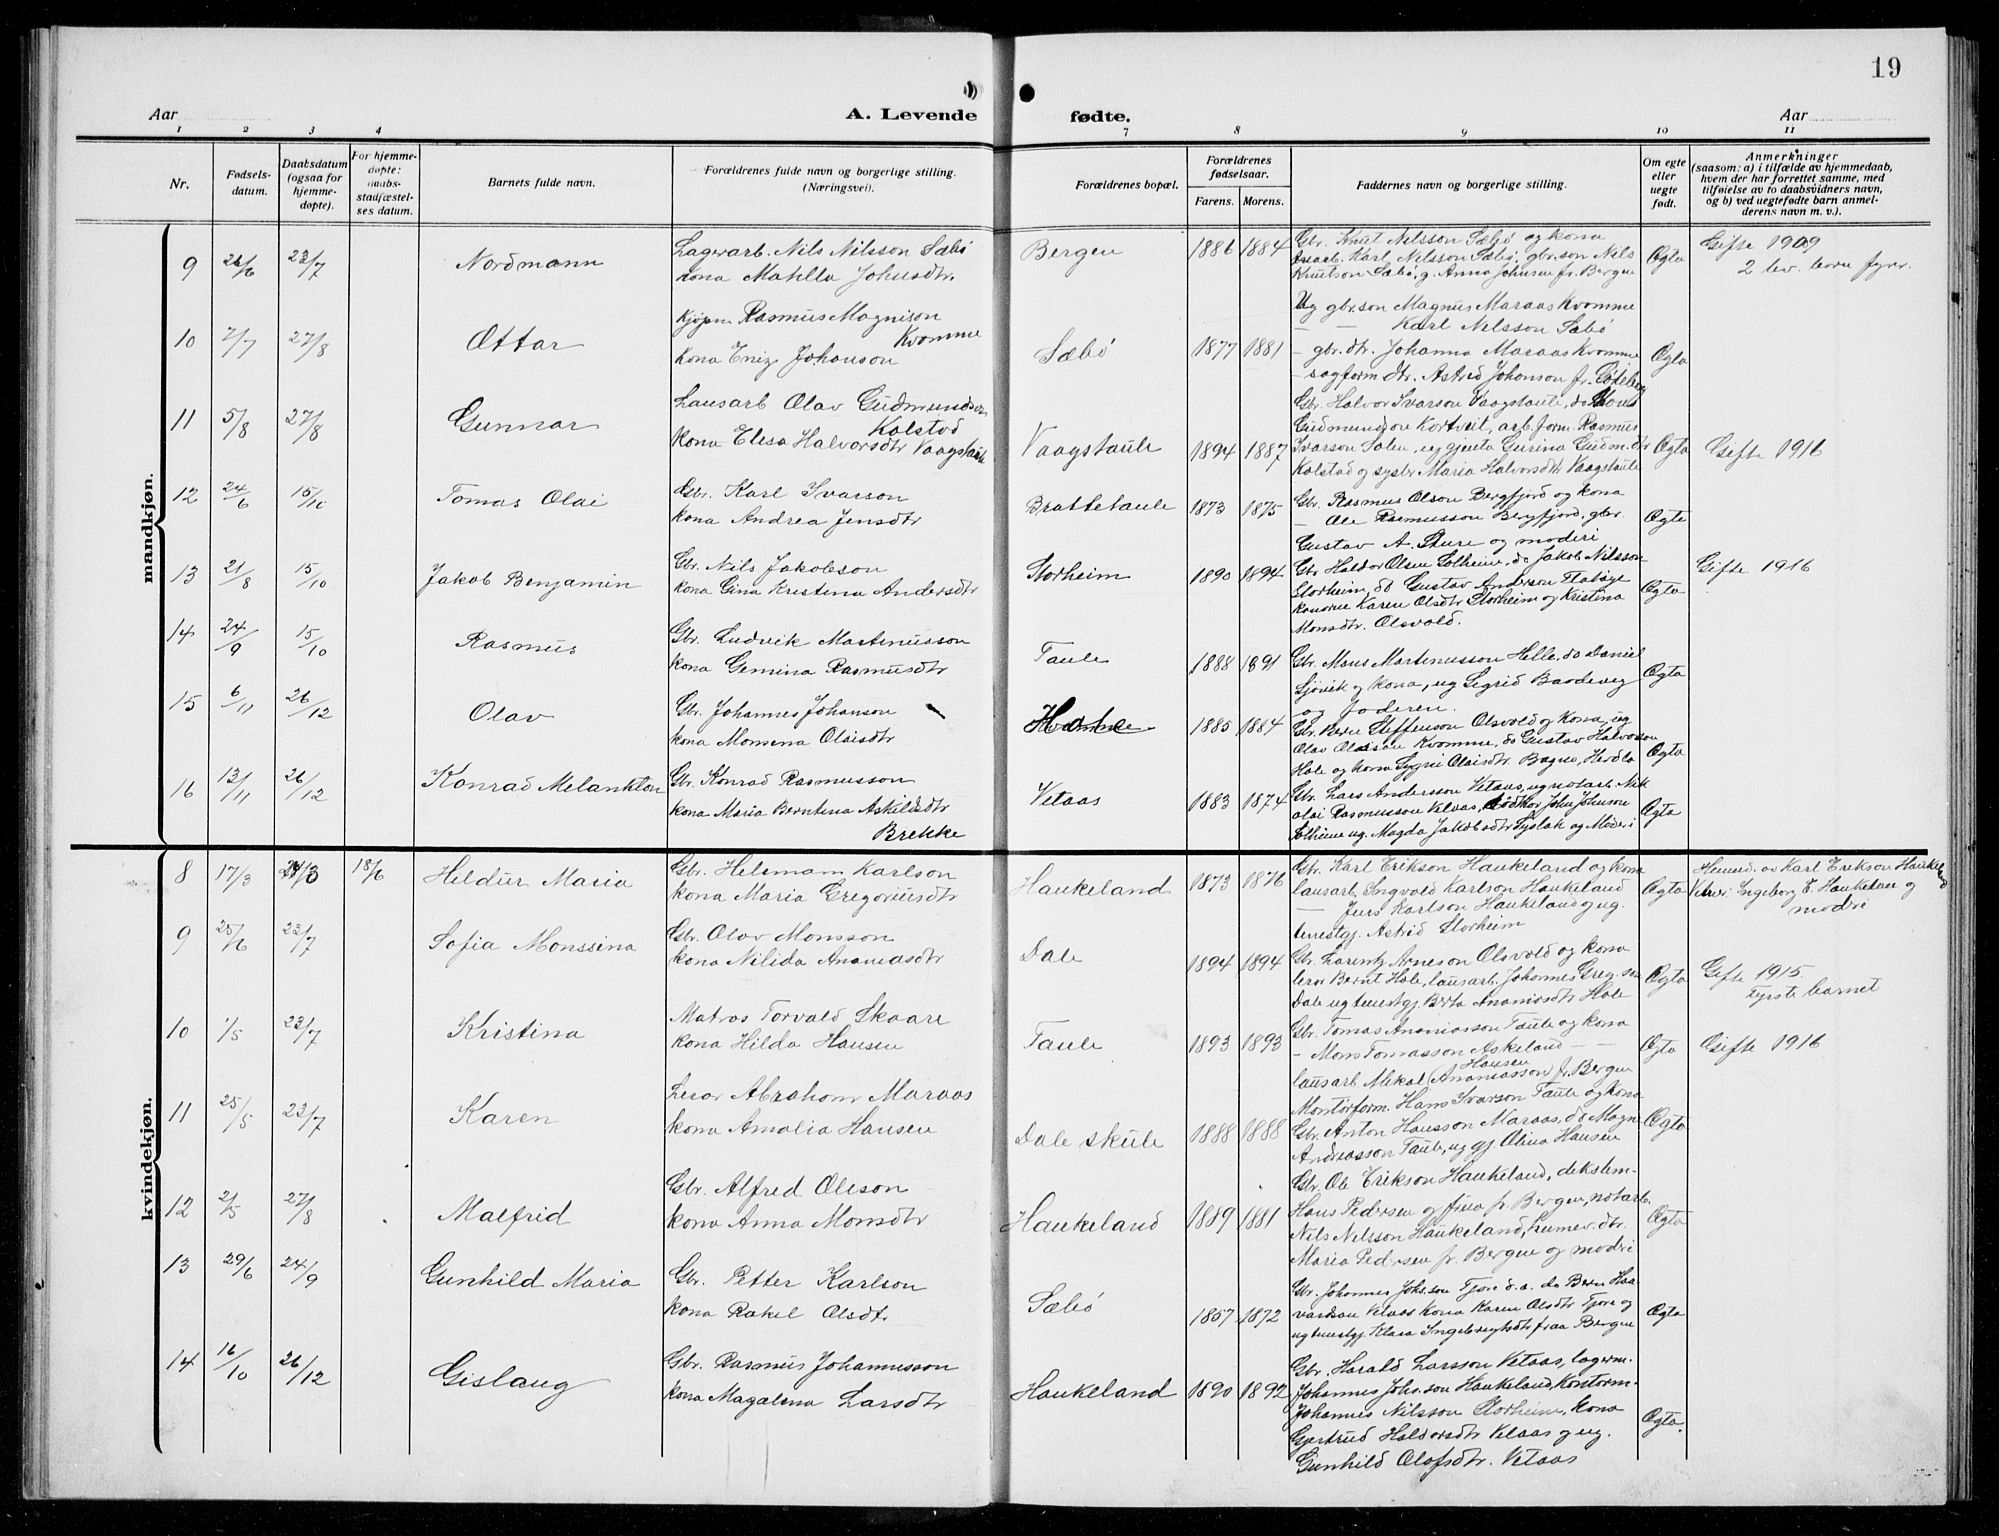 19
Aar
A. Levende fødte.
Aar
1 2 3 4 7 8 9 10 11
Nr.
Fødsels-
datum.
Daabsdatum
(ogsaa for
hjemme-
døpte).
For hjemme-
døpte:
daabs-
stadfæstel-
ses datum.
Barnets fulde navn.
Forældrenes fulde navn og borgerlige stilling.
(Næringsvei).
Forældrenes bopæl.
Forældrenes
fødselsaar.
Farens. Morens.
Faddernes navn og borgerlige stilling.
Om egte
eller
uegte
født.
Anmerkninger
(saasom: a) i tilfælde av hjemmedaab,
hvem der har forrettet samme, med
tilføielse av to daabsvidners navn,
og b) ved uegtefødte barn anmel-
derens navn m. v.).
mandkjøn.
9 23/7 Nordmann
Lagerarb. Nils Nilsson Sæbø
kona Matilla Johnsdtr
Bergen 1886 1884
Gbr. Knut Nilsson Sæbø og kona
Karl Nilsson Sæbø, gbr.son Nils
Knutson Sæbø, g. Anna Johnsen fr. Bergen
Ogta
Gifte 1909
2 lev. born fyrr.
10 7/7 27/8 Ottar
Kjøpm Rasmus Magnison
Kvomme
kona Johanson
Sæbø 1877 1881
Ug gbr.son Magnus Maraas Kvomme
— — Karl Nilsson Sæbø
— gbr.dtr. Johanna Maraas Kvomme
— sagform dtr. Astrid Johanson fr. Göteborg
Ogta
11 5/8 27/8 Gunnar
Lausarb Olav Gudmundson
Kolstad
kona Elesa Halvorsdtr Vaagstaule
Vaagstaule 1894 1887
Gbr. Halvor Ivarson Vaagstaule, do Mons
Gudmundson Kortveit, arb.form. Rasmus
Ivarson Solen, ug gjenta Gurina Gudm.dtr
Kolstad og systr Maria Halvorsdtr Vaagstaule
Ogta
Gifte 1916
12 24/6 15/10 Tomas Olai
Gbr. Karl Ivarson
kona Andrea Jensdtr
Brattetaule 1873 1875
Gbr. Rasmus Olson Bergfjord og kona
— Ole Rasmusson Bergfjord, gbr.
Gustav A. Sture og moderi
Ogta
13 21/8 15/10 Jakob Benjamin
Gbr. Nils Jakobson
kona Gina Kristina Andersdtr
Storheim 1890 1894
Gbr Haldor Olsen Solheim, do Jakob Nilsson
Storheim, do Gustav Anderson Flatøy
konorne Karen Olsdtr Storheim og Kristina
Monsdtr. Olsvold.
Ogta
Gifte 1916
14 24/9 15/10 Rasmus
Gbr. Ludvik Martinusson
kona Gemina Rasmusdtr
Taule 1888 1891
Gbr. Mons Martinusson Helle, do Daniel
Sjøvik og kona, ug Sigrid
og faderen.
Ogta
15 6/11 26/12 Olav
Gbr. Johannes Johanson
kona Momena Olaisdtr
1885 1884
Gbr. Bern Steffenson Olsvold og kona, ug
Olav Olaison Kvomme, do Gustav Halvorson
Hole og kona Sygni Olaisdtr Herdla
Ogta
16 13/11 26/12 Konrad Melankton
Gbr. Konrad Rasmusson
kona Maria Berntina Askildsdtr
Brekke
Vetaas 1883 1874
Gbr. Lars Anderson Vetaas, ug notarb. Nik
olai Rasmusson Vetaas, John Johnson
Solheim ug. Magda Jakobsdtr Tyslak og Moderi
Ogta
kvindekjøn.
8 17/3 18/6 Hildur Maria
Gbr. Helemam Karlson
kona Maria Gregoriusdtr
Haukeland 1873 1876
Gbr. Karl Erikson Haukeland og kona
lausarb. Ingvald Karlson Haukeland
— Jens Karlson Haukeland og ug.
tenestgj. Astrid Storheim
Ogta
Heimed. av Karl Erikson Haukeland
Ingeborg E. Haukeland og
modri
9 25/6 23/7 Sofia Monssina
Gbr. Olav Monsson
kona Nilida Ananiasdtr
Dale 1894 1894
Gbr. Larents Arneson Olsvold og kona
lerar Bernt Hole, lausarb. Johannes Greg.son
Dale ug tenestgj. Berta Ananiasdtr Hole
Ogta
Gifte 1915.
Fyrste barnet
10 1/5 23/7 Kristina
Matros Torvald Skaare
kona Hilda Hansen
Taule 1893 1893
Gbr. Tomas Ananiasson Taule og kona
— Mons Tomasson Askeland — —
Hansen
lausarb. Mikal (Ananiasson) fr. Bergen
Ogta
Gifte 1916
11 25/5 23/7 Karen
Lerar Abraham Maraas
kona Amalia Hansen
Dale skule 1888 1888
Montørform. Hans Ivarson Taule og kona
Gbr. Anton Hansson Maraas, do Magne
Andreasson Taule, ug gj. Olina Hansen
Ogta
12 2/5 27/8 Malfrid
Gbr. Alfred Oleson
kona Anna Monsdtr
Haukeland 1889 1881
Gbr. Ole Erikson Haukeland, dekslem-
Hans Pedersen og frua fr. Bergen, notarb.
Nils Nilsson Haukeland, dtr.
Maria Pedersen fr. Bergen og modri
Ogta
13 29/6 24/9 Gunhild Maria
Gbr. Petter Karlson
kona Rakel Olsdtr
Sæbø 1857 1872
Gbr. Johannes Johs.son Tjore d.a. do Bern Haa
vardson Vetaas kona Karen Olsdtr Tjore og
ug tenestgj. Klara Ingebregtsdtr fraa Bergen
Ogta
14 16/10 26/12 Gislaug
Gbr. Rasmus Johannesson
kona Magalena Larsdtr
Haukeland 1890 1892
Gbr. Harald Larsson Vetaas, lagerm.
Johannes Johs.son Haukeland, kontorm.
Johannes Nilsson Storheim, kona
Gjertrud Haldorsdtr Vetaas og ug.
Gunhild Olafsdtr. Vetaas
Ogta.